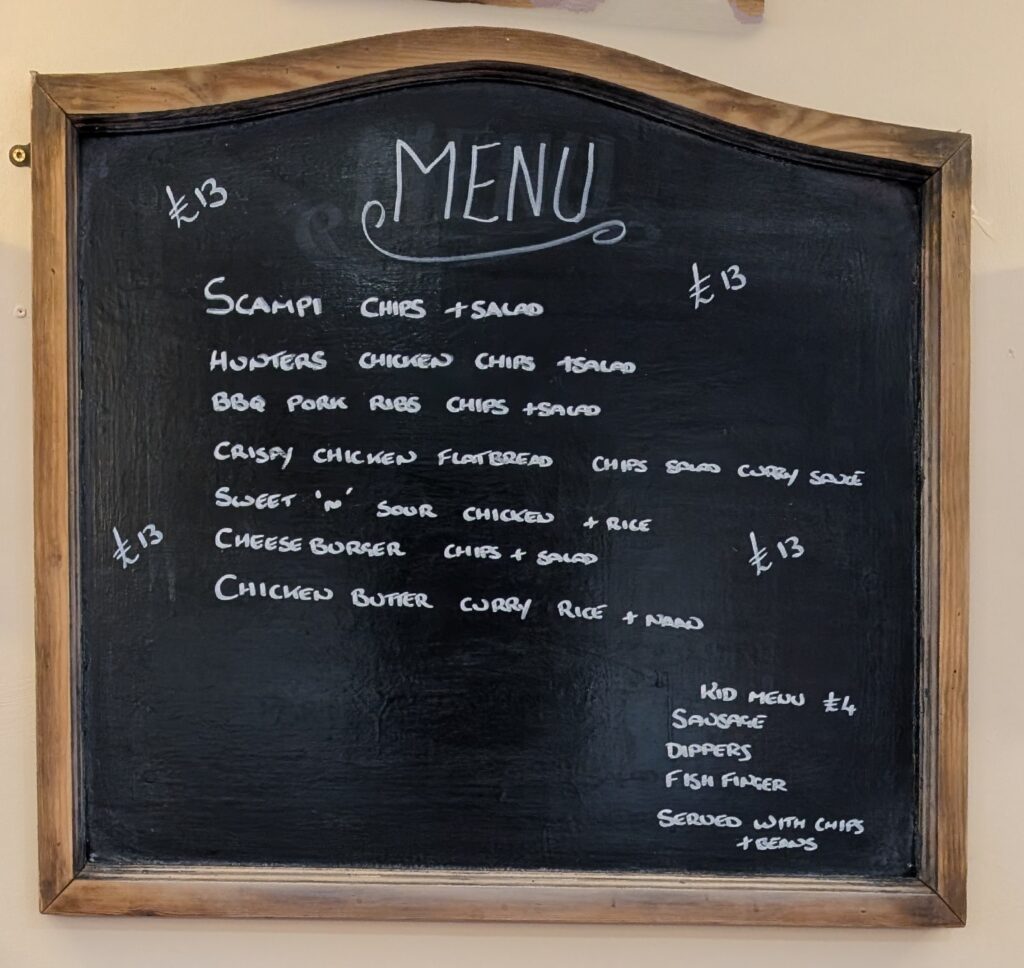 MENU
£13
£13
SCAMPI CHIPS + SALAD
HUNTERS CHICKEN CHIPS + SALAD
BBQ PORK RIBS CHIPS + SALAD
CRISPY CHICKEN FLATBREAD CHIPS SALAD CURRY SAUCE
SWEET 'N' SOUR CHICKEN + RICE
£13
CHEESE BURGER CHIPS + SALAD
£13
CHICKEN BUTTER CURRY RICE + NAAN
KID MENU £4
SAUSAGE
DIPPERS
FISH FINGER
SERVED WITH CHIPS
+ BEANS